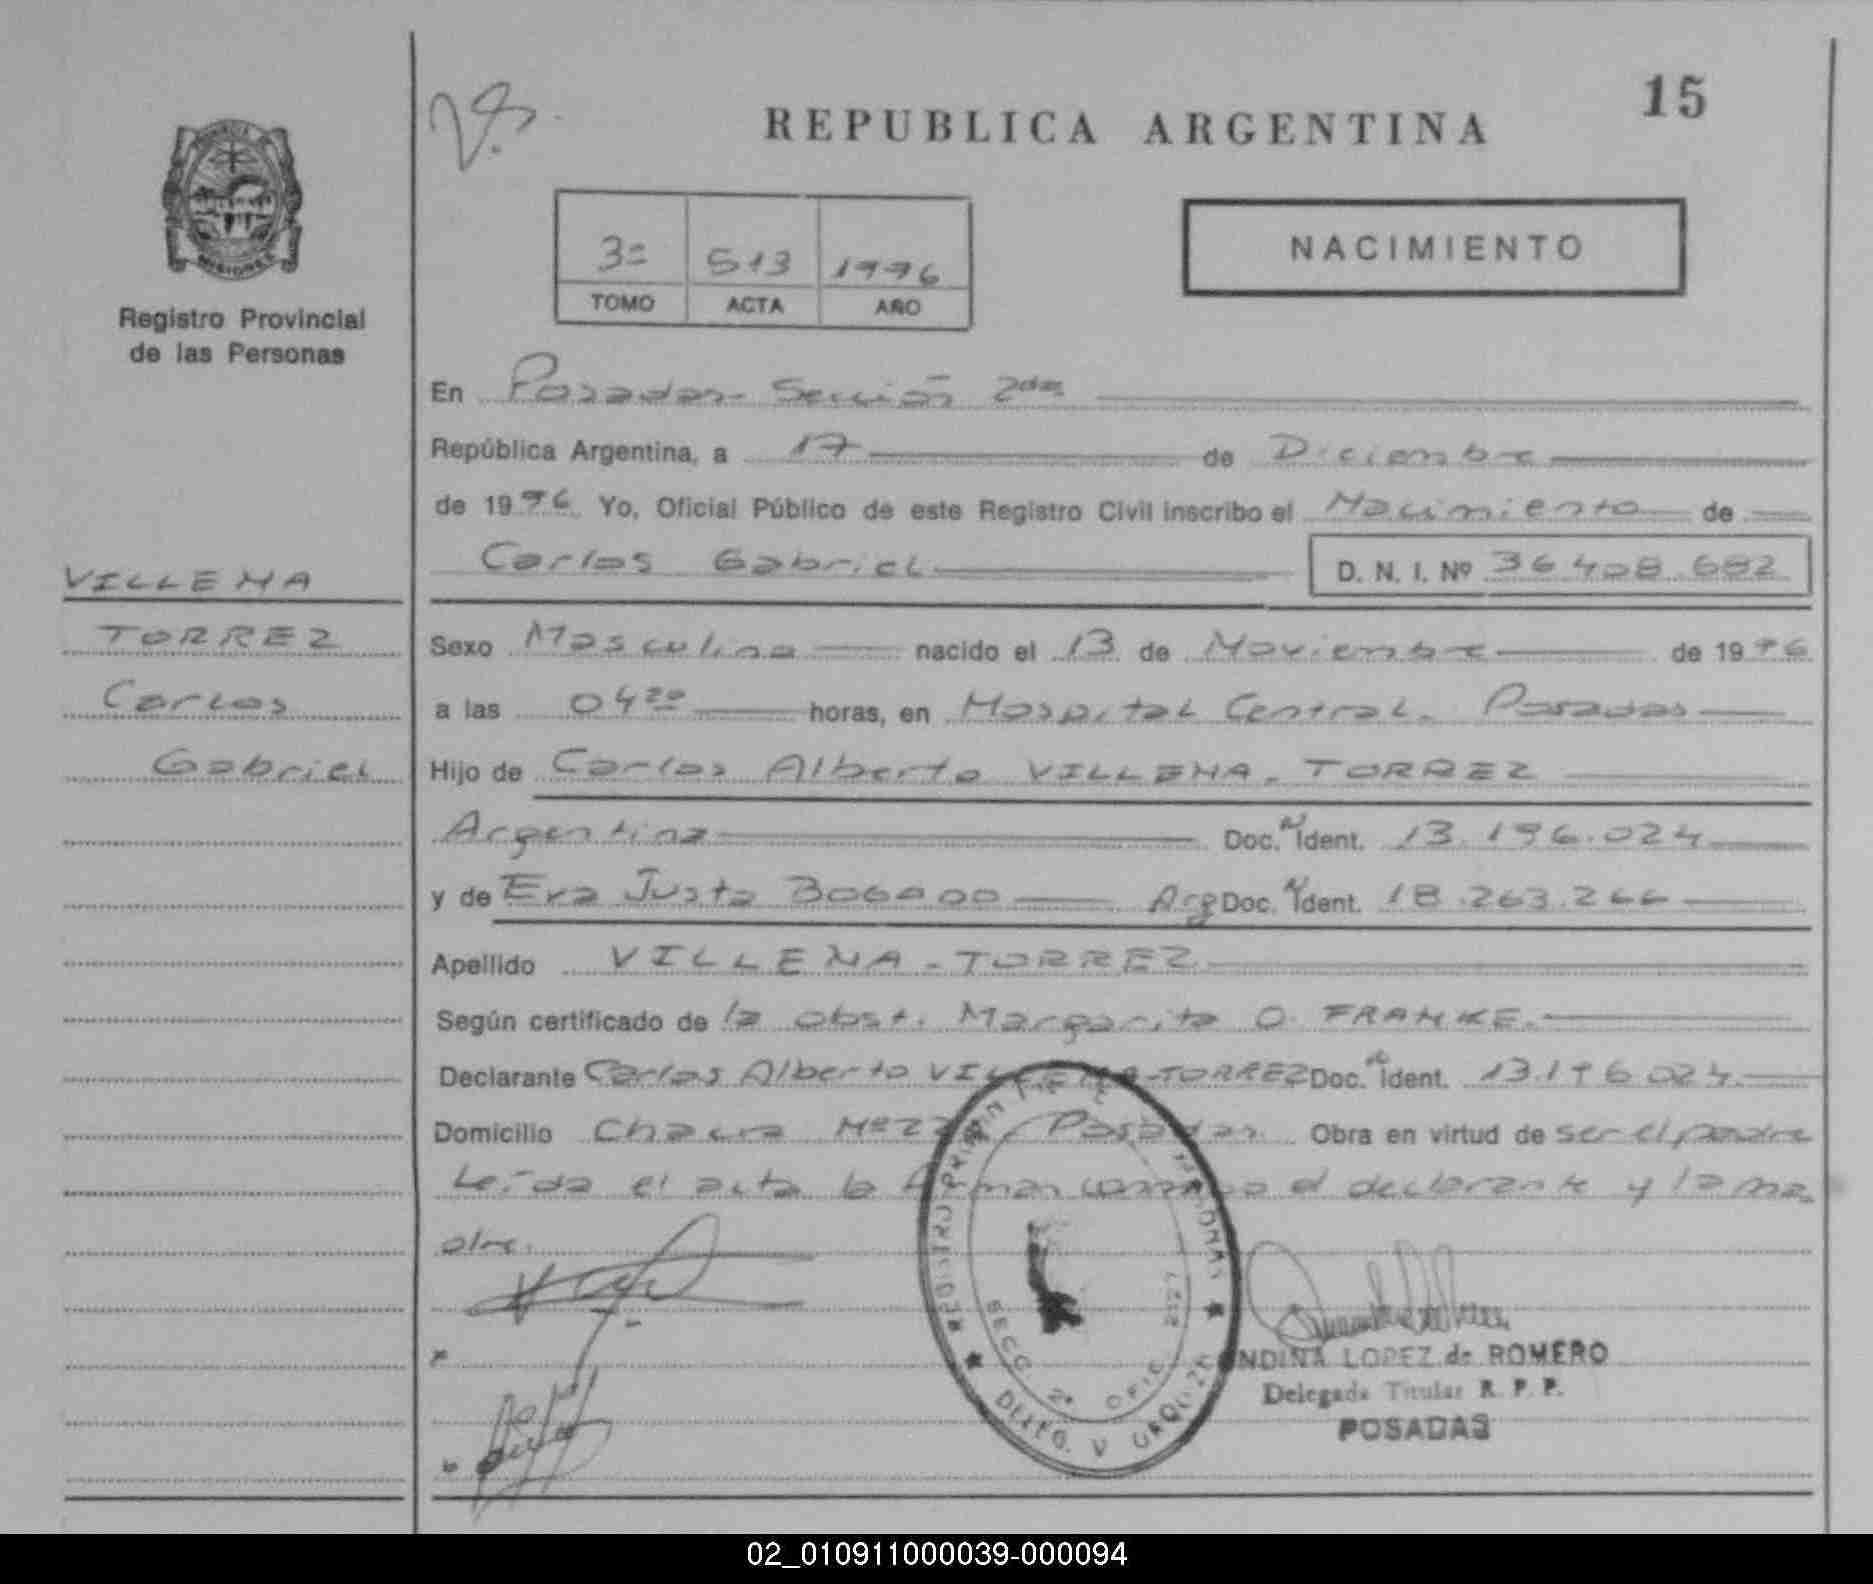 15
REPUBLICA ARGENTINA
MISIONES
Registro Provincial
de las Personas
3º 513 1996
TOMO ACTA AÑO
NACIMIENTO
VILLENA
TORREZ
Carlos
Gabriel
En Posadas- Sección 2da
República Argentina, a 17 de Diciembre
de 1996 Yo, Oficial Público de este Registro Civil inscribo el Nacimiento de
Carlos Gabriel D. N. I. Nº 36.408.682
Sexo Masculino nacido el 13 de Noviembre de 1996
a las 04 20 horas, en Hospital Central. Posadas
Hijo de Carlos Alberto VILLENA-TORREZ
Argentina Doc. N Ident. 13.196.024
y de Eva Justa BOGADO Arg Doc. N Ident. 18.263.266
Apellido VILLENA-TORREZ
Según certificado de la obst. Margarita O. FRANKE.
Declarante Carlos Alberto VILLENA-TORREZ Doc. N Ident. 13.196.024
Domicilio Chacra Posadas. Obra en virtud de ser el padre
Leída el acta la firman conmigo el declarante y la ma
dre.
REGISTRO PERSONAS
SECC. 2ª OFIC. 2127
DLEG. V URQUIZA
NDINA LOPEZ de ROMERO
Delegada Titular R. P. P.
POSADAS
02_010911000039-000094